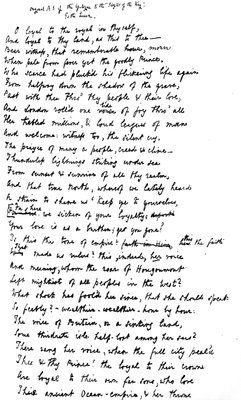 original M.S. of the Epilogue to the "Idylls of the King"
to the Queen.
O loyal to the royal in thyself,
And loyal to thy land, as this to thee—
Bear witness, that rememberable morn
When pale from fever yet the goodly Prince,
Who scarce had pluck'd his flickering life again
From halfway down the shadow of the grave,
Past with thee thro' thy people & their love,
And London roll'd one voice of joy thro' all
Her trebled millions, & loud leagues of man
And welcome: witness too, the silent cry,
The prayer of many a people, creed & clime—
Thunderless lightnings striking under sea
From sunset & sunrise of all thy realm,
And that true North, whereof we lately heard
A strain to shame us 'keep ye to yourselves,
we sicken of your loyalty,
Your love is as a burthen; get you gone!'
Is this the tone of empire? here the faith
That made us rulers? this indeed, her voice
And meaning, whom the roar of Hougoumont
Left mightiest of all peoples in the west?
What shock has fool'd her since, that she should speak
So feebly? — wealthier — wealthier — hour by hour:
The voice of Britain, or a sinking land,
Some third rate isle half-lost among her seas?
There rang her voice, when the full city peal'd
Thee & thy Prince! the loyal to their crown
Are loyal to their own far sons, who love
This ancient Ocean-empire, & her throne